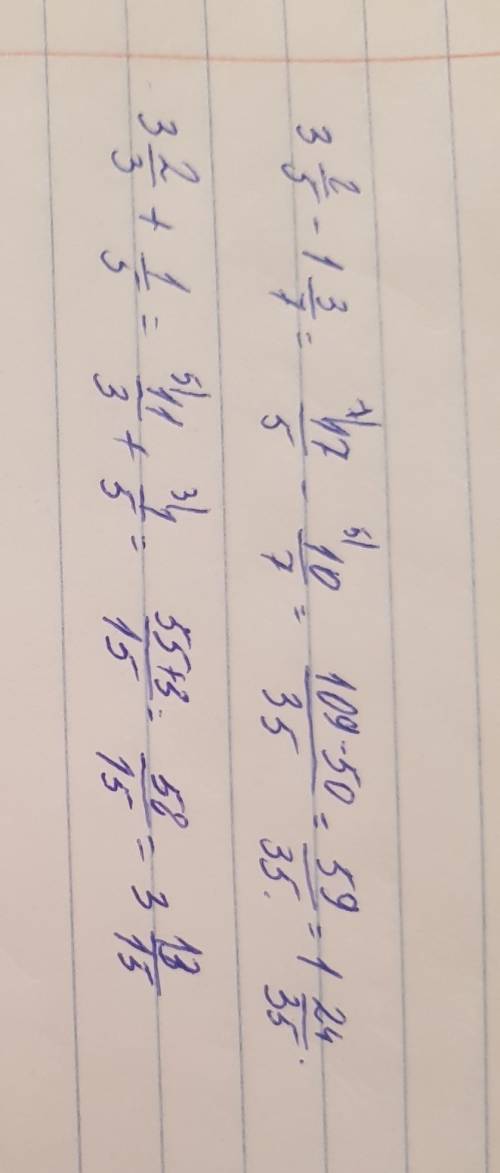 3 2/5 - 1 3/7 = 7/ 17/5 - 5/ 10/7 = 109-50/35 = 59/35 = 1 24/35.
3 2/3 + 1/5 = 5/ 11/3 + 3/ 1/5 = 55+3/15 = 58/15 = 3 13/15